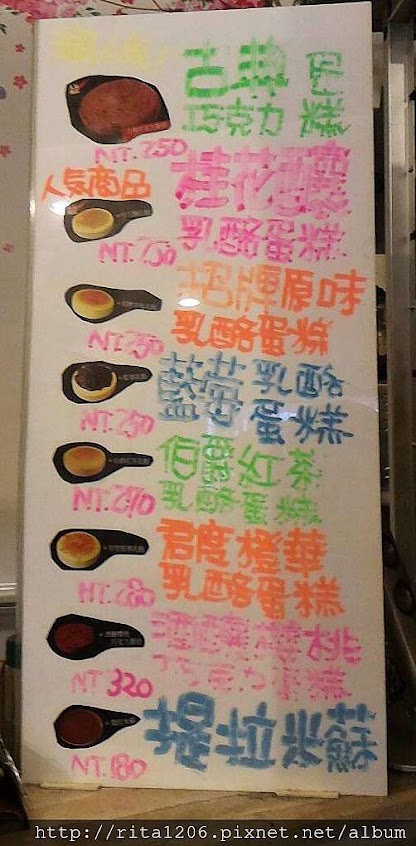 古典 蛋
巧克力 糕
NT.250
人氣商品
桂花釀
乳酪蛋糕
NT.250
招牌原味
乳酪蛋糕
NT.250
藍莓乳酪
蛋糕
NT.250
伯爵紅茶
乳酪蛋糕
NT.270
君度橙華
乳酪蛋糕
NT.280
酒釀櫻桃
巧克力蛋糕
NT.320
提拉米蘇
NT.180
http://rita1206.pixnet.net/album